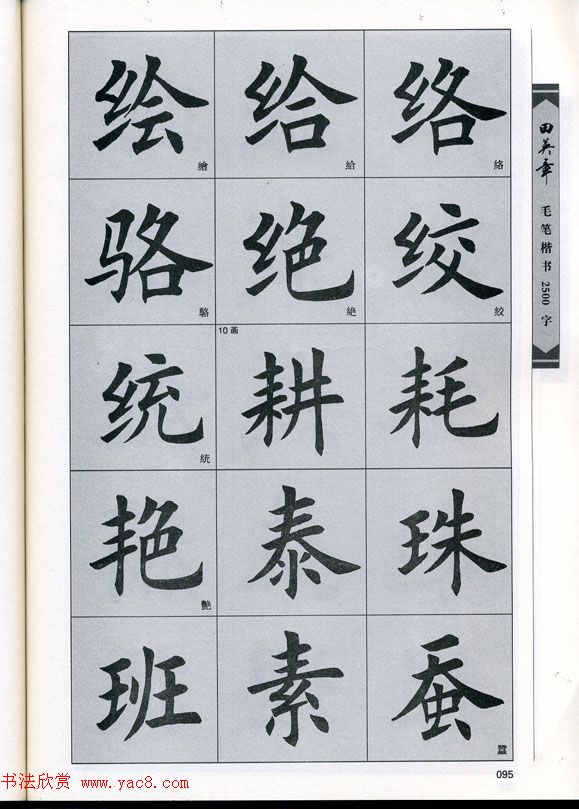 绘 繪 给 給 络 絡
骆 駱 绝 絶 绞 絞
统 統 10画 耕 耗
艳 艷 泰 珠
班 素 蚕 蠶
田英章 毛笔楷书2500字
095
书法欣赏 www.yac8.com